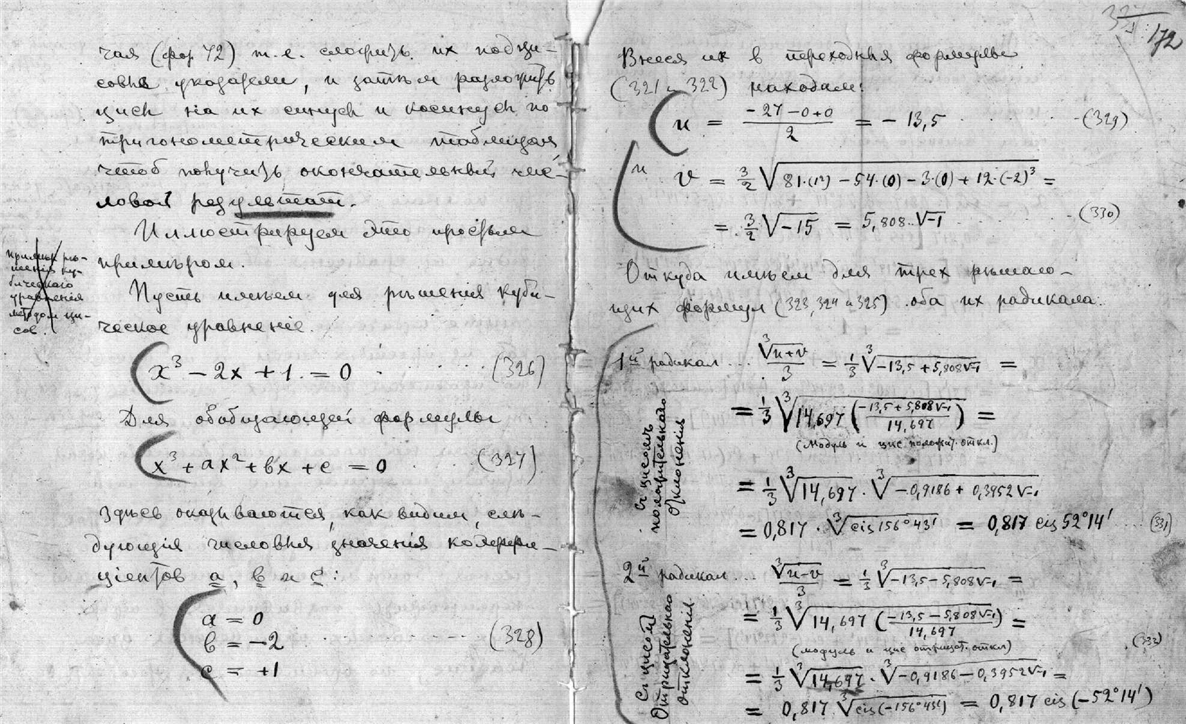 чая (фор. 42) т. е. сложить их подци-
совыя указатели, и затѣм разложить
цисы на их синусы и косинусы по
тригонометрическим таблицам
чтоб получить окончательный чис-
ловой результат.
Иллюстрируем это простым
примѣром.
примѣр рѣ-
шенія ку-
бическаго
уравненія
методом ци-
сов
Пусть имѣем для рѣшенія куби-
ческое уравненіе
x³ − 2x + 1 = 0 (326)
Для обобщающей формулы
x³ + ax² + bx + c = 0 (327)
здѣсь оказываются, как видим, слѣ-
дующія числовыя значенія коэффи-
ціентов a, b и c:
a = 0
b = −2
c = +1
(328)
172
Внеся их в переходныя формулы
(321 и 322) находим:
u = (−27 − 0 + 0)/2 = −13,5 (329)
и
v = 3/2 √(81·(1²) − 54·(0) − 3·(0) + 12·(−2)³) =
= 3/2 √−15 = 5,808..√−1 (330)
Откуда имѣем для трех рѣшаю-
щих формул (323, 324 и 325) оба их радикала.
1й радикал ... ³√(u+v)/3 = 1/3 ³√(−13,5 + 5,808√−1) =
Съ цисомъ положительнаго отклоненія
= 1/3 ³√(14,697 ((−13,5 + 5,808√−1)/14,697)) =
(модуль и цис положит. откл.)
= 1/3 ³√14,697 · ³√(−0,9186 + 0,3952√−1)
= 0,817 · ³√(cis 156°43′) = 0,817 cis 52°14′ (331)
2й радикал ... ³√(u−v)/3 = 1/3 ³√(−13,5 − 5,808√−1) =
Съ цисом отрицательнаго отклоненія
= 1/3 ³√(14,697 ((−13,5 − 5,808√−1)/14,697)) =
(модуль и цис отрицат. откл)
(332)
= 1/3 ³√14,697 · ³√(−0,9186 − 0,3952√−1) =
= 0,817 ³√(cis(−156°43′)) = 0,817 cis(−52°14′)